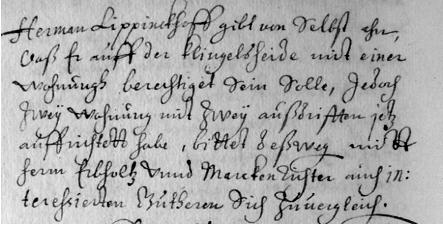 Herman Lippinckhoff gibt von Selbst ahn,
Daß Er auff der Klingelsheide mit einer
wohnungh berechtiget sein solle, Jedoch
Zwey wohnung mit Zwey außdrifften jetz
auffrichtett habe, bittet deßweg mitt
herrn Erbholtz unnd Marckenrichter auch in:
teressierten Gutheren Sich Zuvergleich.